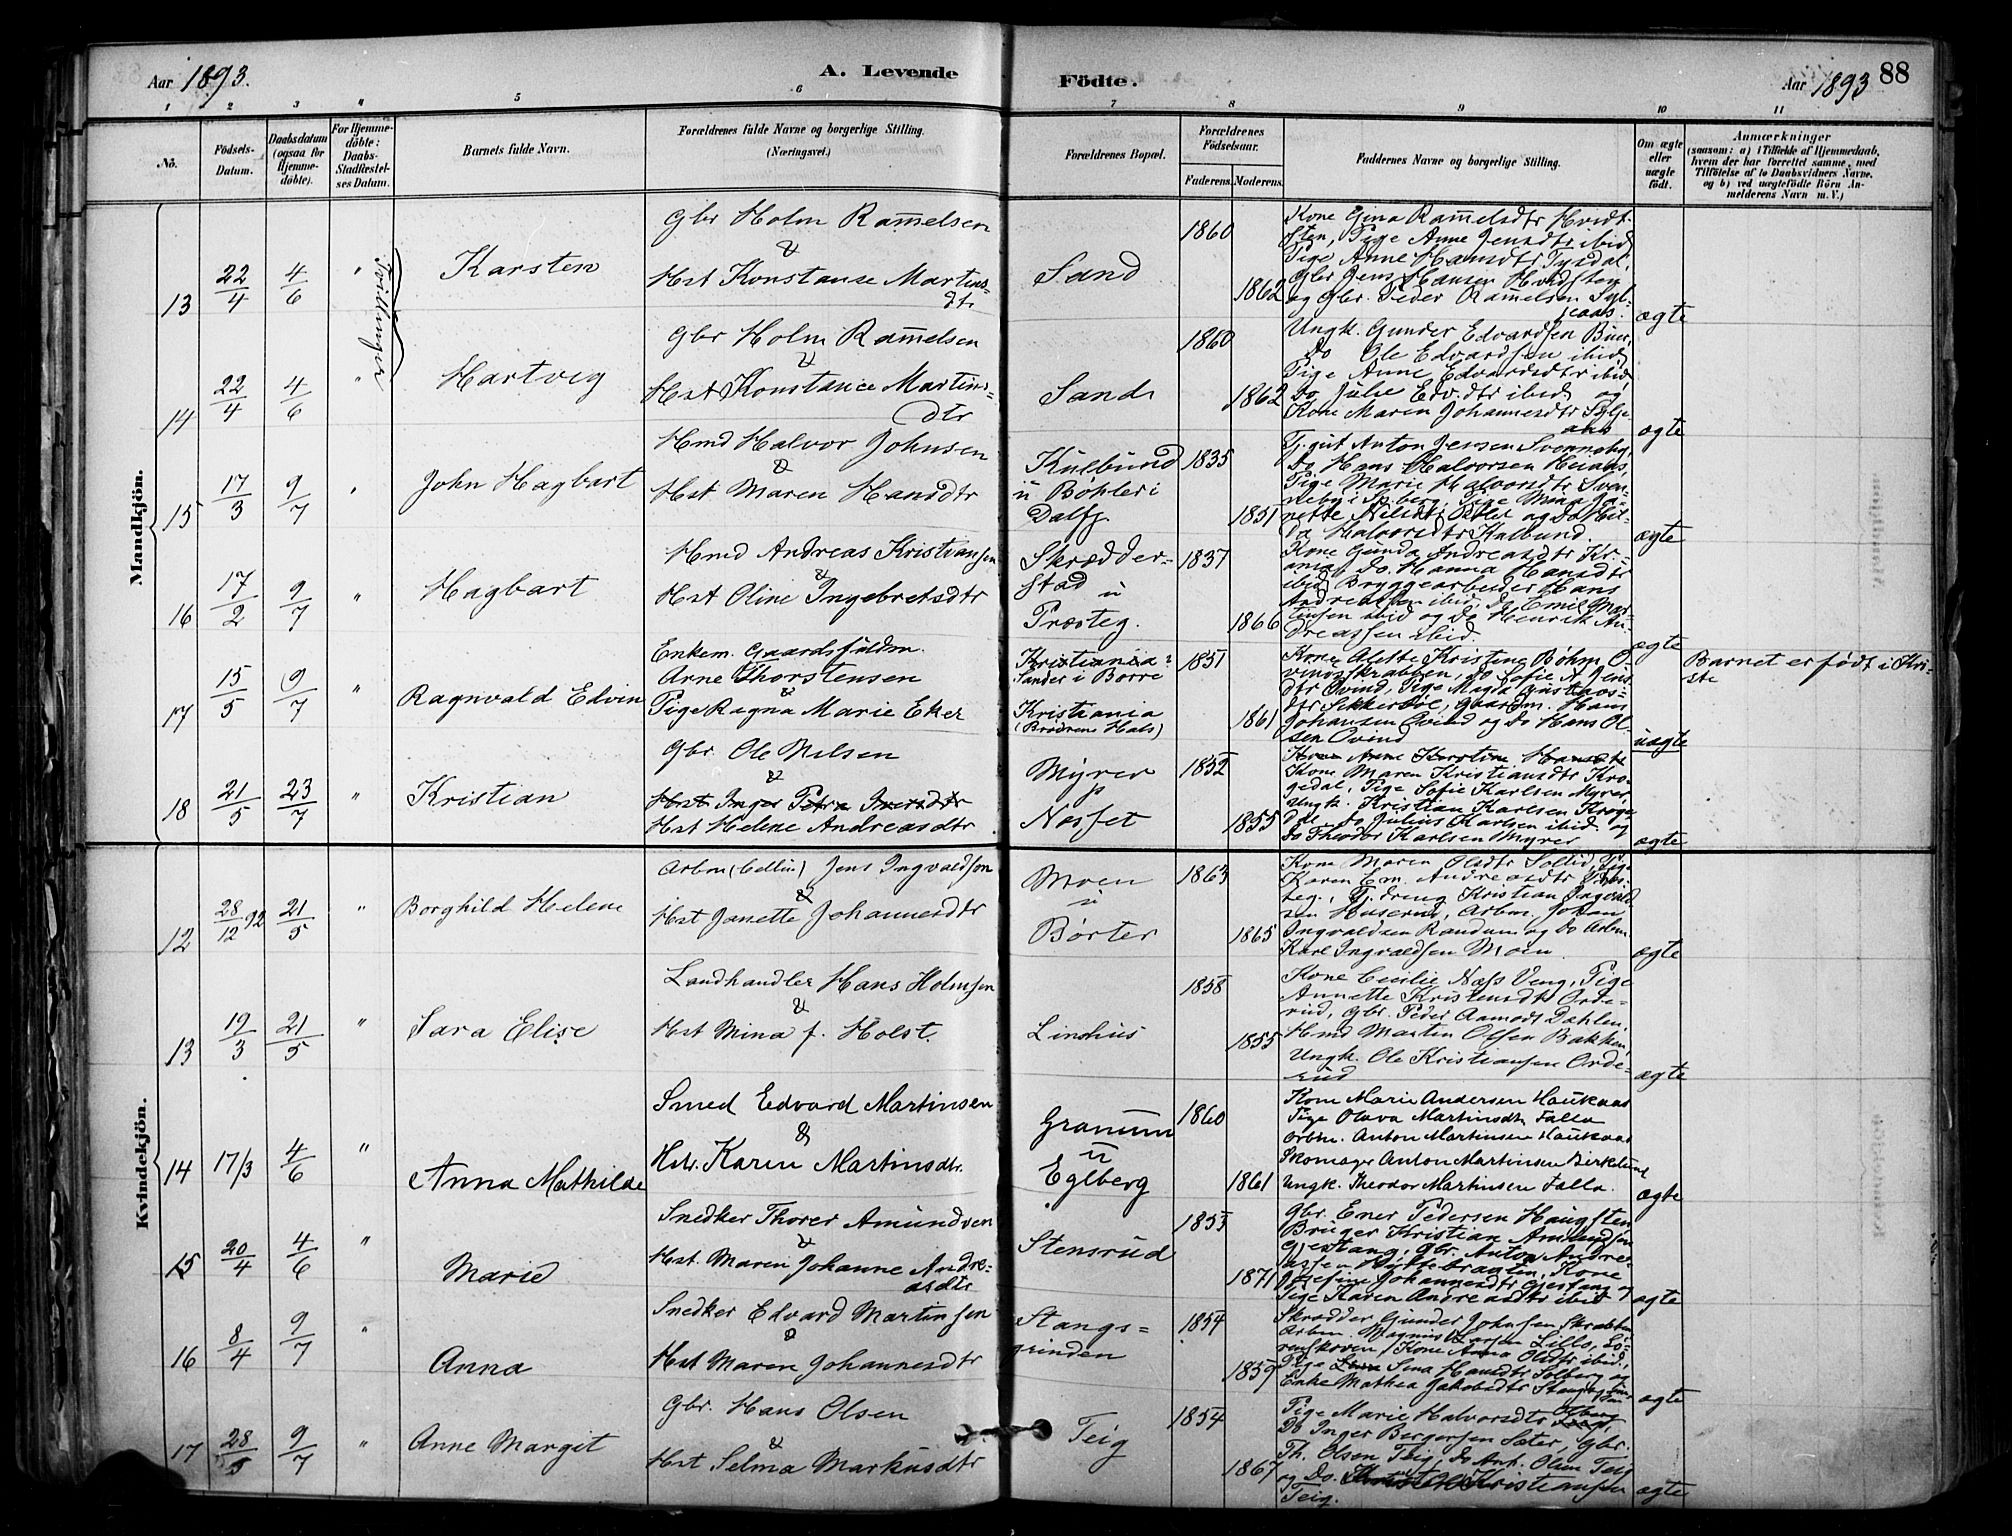 Aar 1893.
A. Levende
Födte.
Aar 1893
88
1 2 3 " 5 6 7 8 9 10 11
No.
Födsels-
Datum.
Daabsdatum
(ogsaa for
Hjemme-
döbte).
For Hjemme-
döbte:
Daabs-
Stadfæstel-
ses Datum.
Barnets fulde Navn.
Forældrenes fulde Navne og borgerlige Stilling.
(Næringsvei.)
Forældrenes Bopæl.
Forældrenes
Födselsaar.
Faderens.
Moderens.
Faddernes Navne og borgerlige Stilling.
Om ægte
eller
uægte
födt.
Anmærkninger
(saasom: a) i Tilfælde af Hjemmedaab,
hvem der har forrettet samme, med
Tilföielse af to Daabsvidners Navne.
og b) ved uægtefödte Börn An-
melderens Navn m. V.)
Mandkjön.
Tvillinger
13 22/4 4/6 " Karsten
Gbr Holm Ramelsen
&
Hst Konstanse Martins-
dtr
Sand
1860
1862
Kone Gina Ramelsdtr Hvidt-
sten, Pige Anne Jensdtr ibid
Pige Anne Hansdtr Tysdal,
Gbr Jens Hansen Hvidsten
og Gbr. Peder Ramelsen
ægte
14 22/4 4/6 " Hartvig
Gbr Holm Ramelsen
&
Hst Konstance Martins-
dtr
Sand
1860
1862
Ungk. Gunder Edvardsen
Do Ole Edvardsen ibid
Pige Anne Edvardsdtr ibid
Do Julie Edv.dtr ibid og
Kone Maren Johannesdtr
ægte
15 17/3 9/7 " John Hagbart
Hmd Halvor Johnsen
&
Hst Maren Hansdtr
Kulbund
u Bøhler i
Dalfj.
1835
1851
Tj.gut Anton Jensen
Do Hans Halvorsen
Pige Marie Halvorsdtr Sven-
neby i Sp.berg, Pige Mina Ja-
nette og Do Hil-
da Halvorsdtr Kulbund.
ægte
16 17/2 9/7 " Hagbart
Hmd Andreas Kristiansen
&
Hst Oline Ingebretsdtr
Skrædder-
stad u
Præsteg.
1837
1866
Kone Gunda Andreasdtr Kr.-
ania, Do. Hanna Hansdtr
ibid Bryggearbeider Hans
Andreassen ibid, Do Emil Mar-
tinsen ibid og Do Henrik An-
dreassen ibid.
ægte
17 15/5 9/7 " Ragnvald Edvin
Enkem. Gaardsfuldm.
Arne Thorstensen
&
Pige Ragna Marie Eker
Kristiania-
Sander i Borre
Kristiania
(Brødrene Hals)
1851
1861
Kone Alette Kristine Bøhm
Sofie A. Jens-
dtr Ovind, Pige Magda Gustavs-
dtr Gaardm. Hans
Johansen Ovind og Do Hans Ol-
sen Ovind
uægte
Barnet er født i Kri-
ste
18 21/5 23/7 " Kristian
Gbr Ole Nilsen
&
Hst Inger Petra Iversdtr
Hst Helene Andreasdtr
Myrer
p
Nosset
1852
1855
Kone Anne Kirstine Hansdtr
Kone Maren Kristiansdtr Kro-
gedal, Pige Sofie Karlsen Myrer
Ungk. Kristian Karlsen Kroge-
dal Do Julius Karlsen ibid og
Do Theodor Karlsen Myrer
ægte
Kvindekjön.
12 28/12 92 21/5 " Borghild Helene
Arbm (Cellul) Jens Ingvaldsen
&
Hst Janette Johannesdtr
Moen
u
Børter
1863
1865
Kone Maren Olsdtr Sollid, Pige
Karen Em. Andreasdtr Præs-
teg., Tj.dreng Kristian Ingvald-
sen Huserud, Arbm. Johan
Ingvaldsen Randum og Do Arbm
Karl Ingvaldsen Moen
ægte
13 19/3 21/5 " Sara Elise
Landhandler Hans Holmsen
&
Hst Mina f. Holst.
Linshus
1858
1855
Kone Cecilie Næss Veng, Pige
Annette Kristensdtr Orde-
rud, Gbr. Peder Aamodt Dahlen,
Hmd Martin Olsen Bakken,
Ungk. Ole Kristiansen Orde-
rud
ægte
14 17/3 4/6 " Anna Mathilde
Smed Edvard Martinsen
&
Hstr. Karen Martinsdtr.
Granum
u
Eglberg
1860
1861
Kone Marie Andersen Haukaas
Pige Olava Martinsdtr Falla
Arbm. Anton Martinsen Haukaas
Skomager Anton Martinsen Birkelund
Ungk. Theodor Martinsen Falla.
ægte
15 20/4 4/6 " Marie
Snedker Thorer Amundsen
&
Hst. Maren Johanne Andre-
asdtr
Stensrud
1853
1871
Gbr. Ener Pedersen Haugsten
Bruger Kristian Amundsen
Gjestang, Gbr. Anton Andre-
assen Hyttebraaten, Kone
Josefine Johannesdtr Gjestang og
Pige Karen Andreasdtr ibid
ægte
16 8/4 9/7 " Anna
Snedker Edvard Martinsen
&
Hst Maren Johannesdtr
Stangs-
grinden
1854
1859
Skrædder Gunder Johnsen
Arbm. Magnus Larsen Lillo, Lö-
renskoven, Kone Anna Olsdtr ibid,
Pige Sina Hansdtr Solberg og
Enke Mathea Jakobsdtr
ægte
17 28/5 9/7 " Anne Margit
Gbr. Hans Olsen
&
Hst Selma Markusdtr
Teig
1854
1867
Pige Marie Halvorsdtr
Do Inger Bergersen Sæter, Gbr.
Th. Olsen Teig, Do Anh. Olsen Teig
og Do. Kristiansen
Teig.
ægte